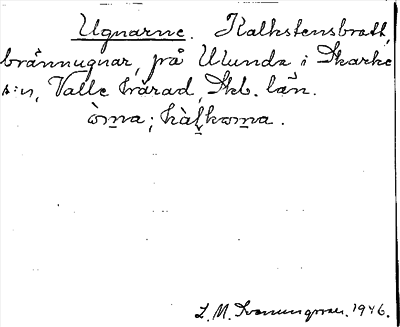 Ugnarne. Kalkstensbrott,
brännugnar, på Ulunda i Skarke
s:n, Valle härad, Skb. län.
òma; kàlkoma.
L. M. Svenungsson. 1946.